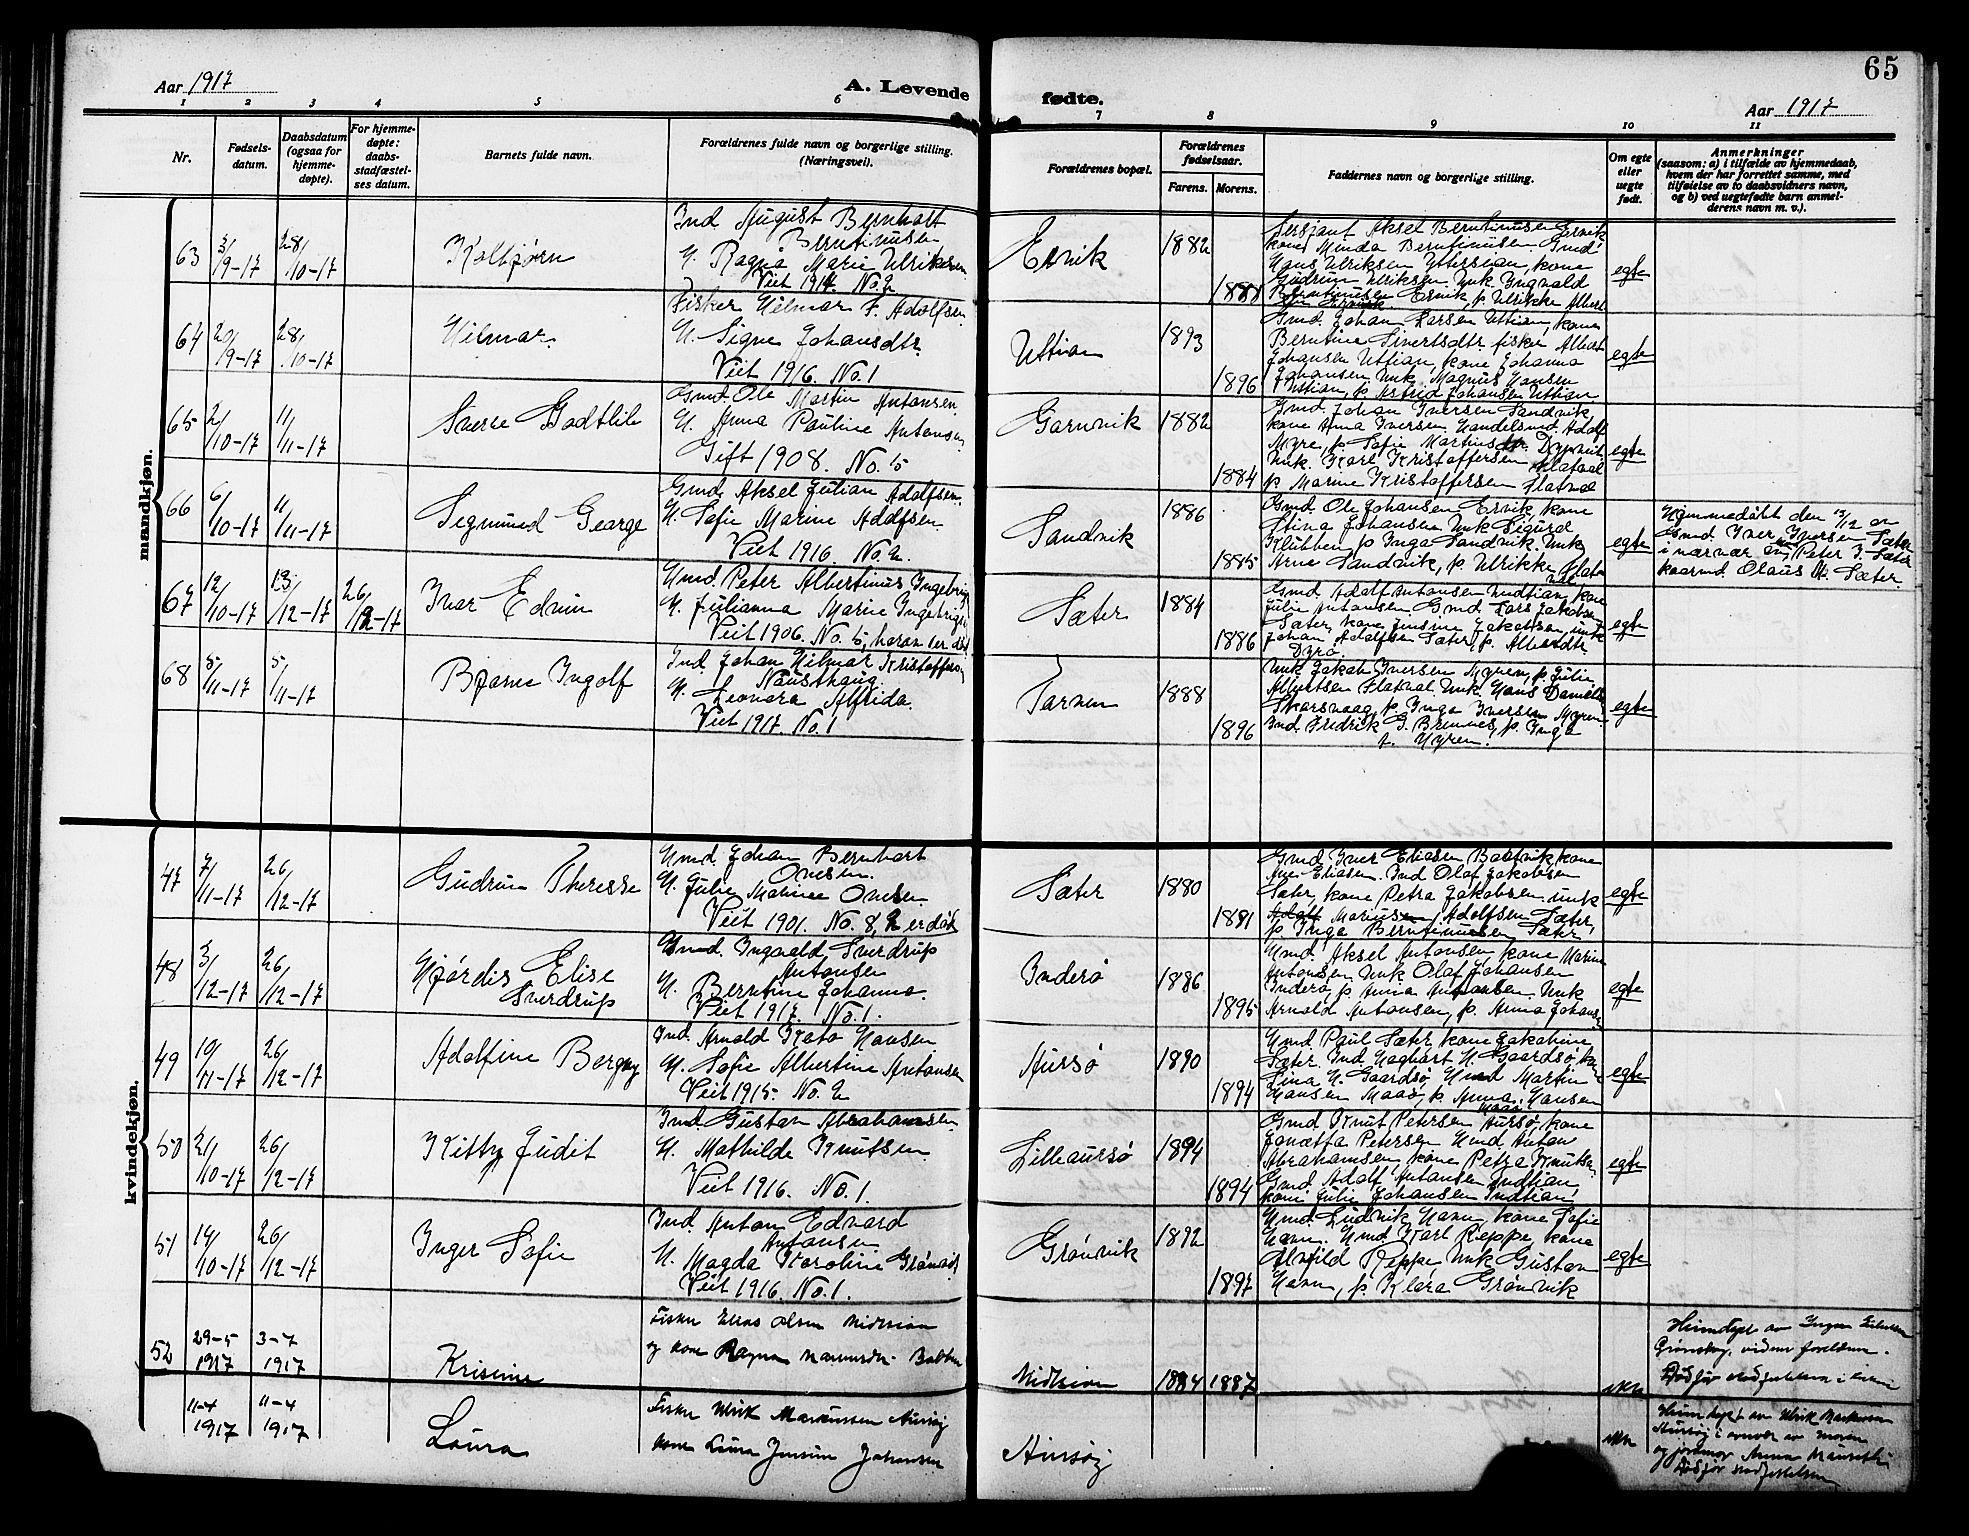 65
Aar 1917
A. Levende fødte.
Aar 1917
1 2 3 4 5 6 7 8 9 10 11
Nr.
Fødsels-
datum.
Daabsdatum
(ogsaa for
hjemme-
døpte).
For hjemme-
døpte:
daabs-
stadfæstel-
ses datum.
Barnets fulde navn.
Forældrenes fulde navn og borgerlige stilling.
(Næringsvei).
Forældrenes bopæl.
Forældrenes
fødselsaar.
Farens. Morens.
Faddernes navn og borgerlige stilling.
Om egte
eller
uegte
født.
Anmerkninger
(saasom: a) i tilfælde av hjemmedaab,
hvem der har forrettet samme, med
tilføielse av to daabsvidners navn,
og b) ved uegtefødte barn anmel-
derens navn m. v.).
mandkjøn.
63 3/9-17 28/10-17 Kolbjørn
Ind August Bernhart
Berntinusen
H. Ragna Marie Ulriksen
Viet 1914. No. 2
Ervik 1882 1888
Sersjant Aksel Berntinusen Ervik
kone Minda Berntinusen Gmd
Hans Ulriksen Yttersian, kone
Gudrun Ulriksen Umk Ingvald
Berntinusen Ervik, p. Ulrikke Albert
egte
64 20/9-17 28/10-17 Hilmar
Fisker Hilmar F. Adolfsen
H. Signe Johansdtr.
Viet 1916. No. 1
Uttian 1893 1896
Gmd. Johan Larsen Uttian, kone
Berntine Sivertsdtr. fisker Albert
Johansen Uttian, kone Johanna
Johansen Umk. Magnus Hansen
Uttian, p. Astrid Johansen Uttian
egte
65 2/10-17 11/11-17 Sverre Godtlib
Gmd. Ole Martin Antonsen
H. Anna Pauline Antonsen
Gift 1908. No. 5
Garnvik 1882 1884
Gmd. Johan Iversen Sandvik,
kone Anna Iversen. Handelsmd. Adolf
Myre, p. Sofie Martinsdtr. Dypvik
Umk. Karl Kristoffersen Flatval
p. Marine Kristoffersen Flatval
egte
66 6/10-17 11/11-17 Sigmund George
Gmd. Aksel Julian Adolfsen
H. Sofie Marine Adolfsen
Viet 1916 No. 2.
Sandvik 1886 1885
Gmd. Ole Johansen Ervik, kone
Stina Johansen Umk Sigurd
Klubben p. Inga Sandvik. Umk
Arne Sandvik, p. Ulrikke Flatval
egte
67 12/10-17 13/12-17 26/12-17 Ivar Edvin
Hmd. Peter Albertinus Ingebrig
H. Julianna Marie Ingebrigs
Viet 1906. No. 5, hvoraf 1 er død
Sæter 1884 1886
Gmd. Adolf Antonsen Indtian, kone
Julie Antonsen Gmd Lars Jakobsen
Sæter, kone Jensine Jakobsen, umk
Johan Adolfsen Sæter, p. Albertdtr.
Dyrø.
egte
Hjemmedøbt den 13/12 av
Gmd. Iver Iversen Sæter
i nærvær av Peter I. Sæter
kaarmd. Olaus M. Sæter.
68 5/11-17 5/11-17 Bjarne Ingolf
Ind. Johan Hilmar Kristoffersen
Nausthaug.
H. Leonora Alfrida.
Viet 1917. No. 1
Tarnen 1888 1896
Umk Jakob Iversen Myren, p Julie
Albertsen Flatval Umk. Hans Daniels
Skarsvaag, p. Inga Iversen Myren
Ind. Fredrik G. Brennes, p. Inga
I. Myren.
egte
kvindekjøn.
47 7/11-17 26/12-17 Gudrun Therese
Hmd. Johan Bernhart
Onesen.
H. Julie Marine Onesen.
Viet 1901. No. 8, 2 er død
Sæter 1880 1881
Gmd Iver Eliasen Balsvik kone
Ane Eliasen. Ind Olaf Jakobsen
Sæter, kone Petra Jakobsen. umk
Marius Adolfsen Sæter,
p. Inga Berntinusen Sæter
egte
48 3/12-17 26/12-17 Hjørdis Elise
Sverdrup
Gmd. Ingvald Sverdrup
Antonsen
H. Berntine Johanna.
Viet 1917. No. 1.
Inderø 1886 1895
Hmd. Aksel Antonsen, kone Marie
Antonsen Umk Olaf Johansen
Inderø, p. Anna Antonsen. Umk
Arnold Antonsen, p. Anna Johansen
egte
49 10/11-17 26/12-17 Adolfine Borgny
Ind. Arnold Kato Hansen
H. Sofie Albertine Antonsen
Viet 1915. No. 2
Aursø 1890 1894
Hmd Paul Sæter, kone Jakobine
Sæter. Ind Haghart H. Gaardsø, kone
Lina H. Gaardsø, Hmd Martin
Hansen Maasø, p. Anna Hansen
Maasø
egte
50 21/10-17 26/12-17 Kitty Judit
Ind. Gustav Abrahamsen.
H. Mathilde Knutsen
Viet 1916. No. 1.
Lilleaursø 1894 1894
Gmd Knut Petersen Aursø, kone
Jonetta Petersen Hmd Anton
Abrahamsen kone Petra Knutsen
Gmd Adolf Antonsen Indtian
kone Julie Johansen Indtian
egte
51 14/10-17 26/12-17 Inger Sofie
Ind. Anton Edvard
Antonsen
H. Magda Karoline Grønvik
Viet 1916. No. 1.
Grønvik 1892 1897
Hmd. Ludvik Havn, kone Sofie
Havn. Hmd. Karl Reppe, kone
Alvhild Reppe Umk Gustav
Havn, p. Klara Grønvik
egte
52 29-5 1917 3-7 1917 Krisine
Fisker Elias Olsen Midtsian
og kone Ragna
Midtsian 1884 1887
ekte
Heimdøpt av
Grønskag, vidner foreldrene.
11-4 1917 11-4 1917 Laura
Fisker Ulrik Markussen Aursøy
kone Laura Jensine Johansen
Aursøy
ekte
Heimdøpt av Ulrik Markussen
Aursøy i nærvær av moren
og jordmor Anna
Død før stadfestelsen